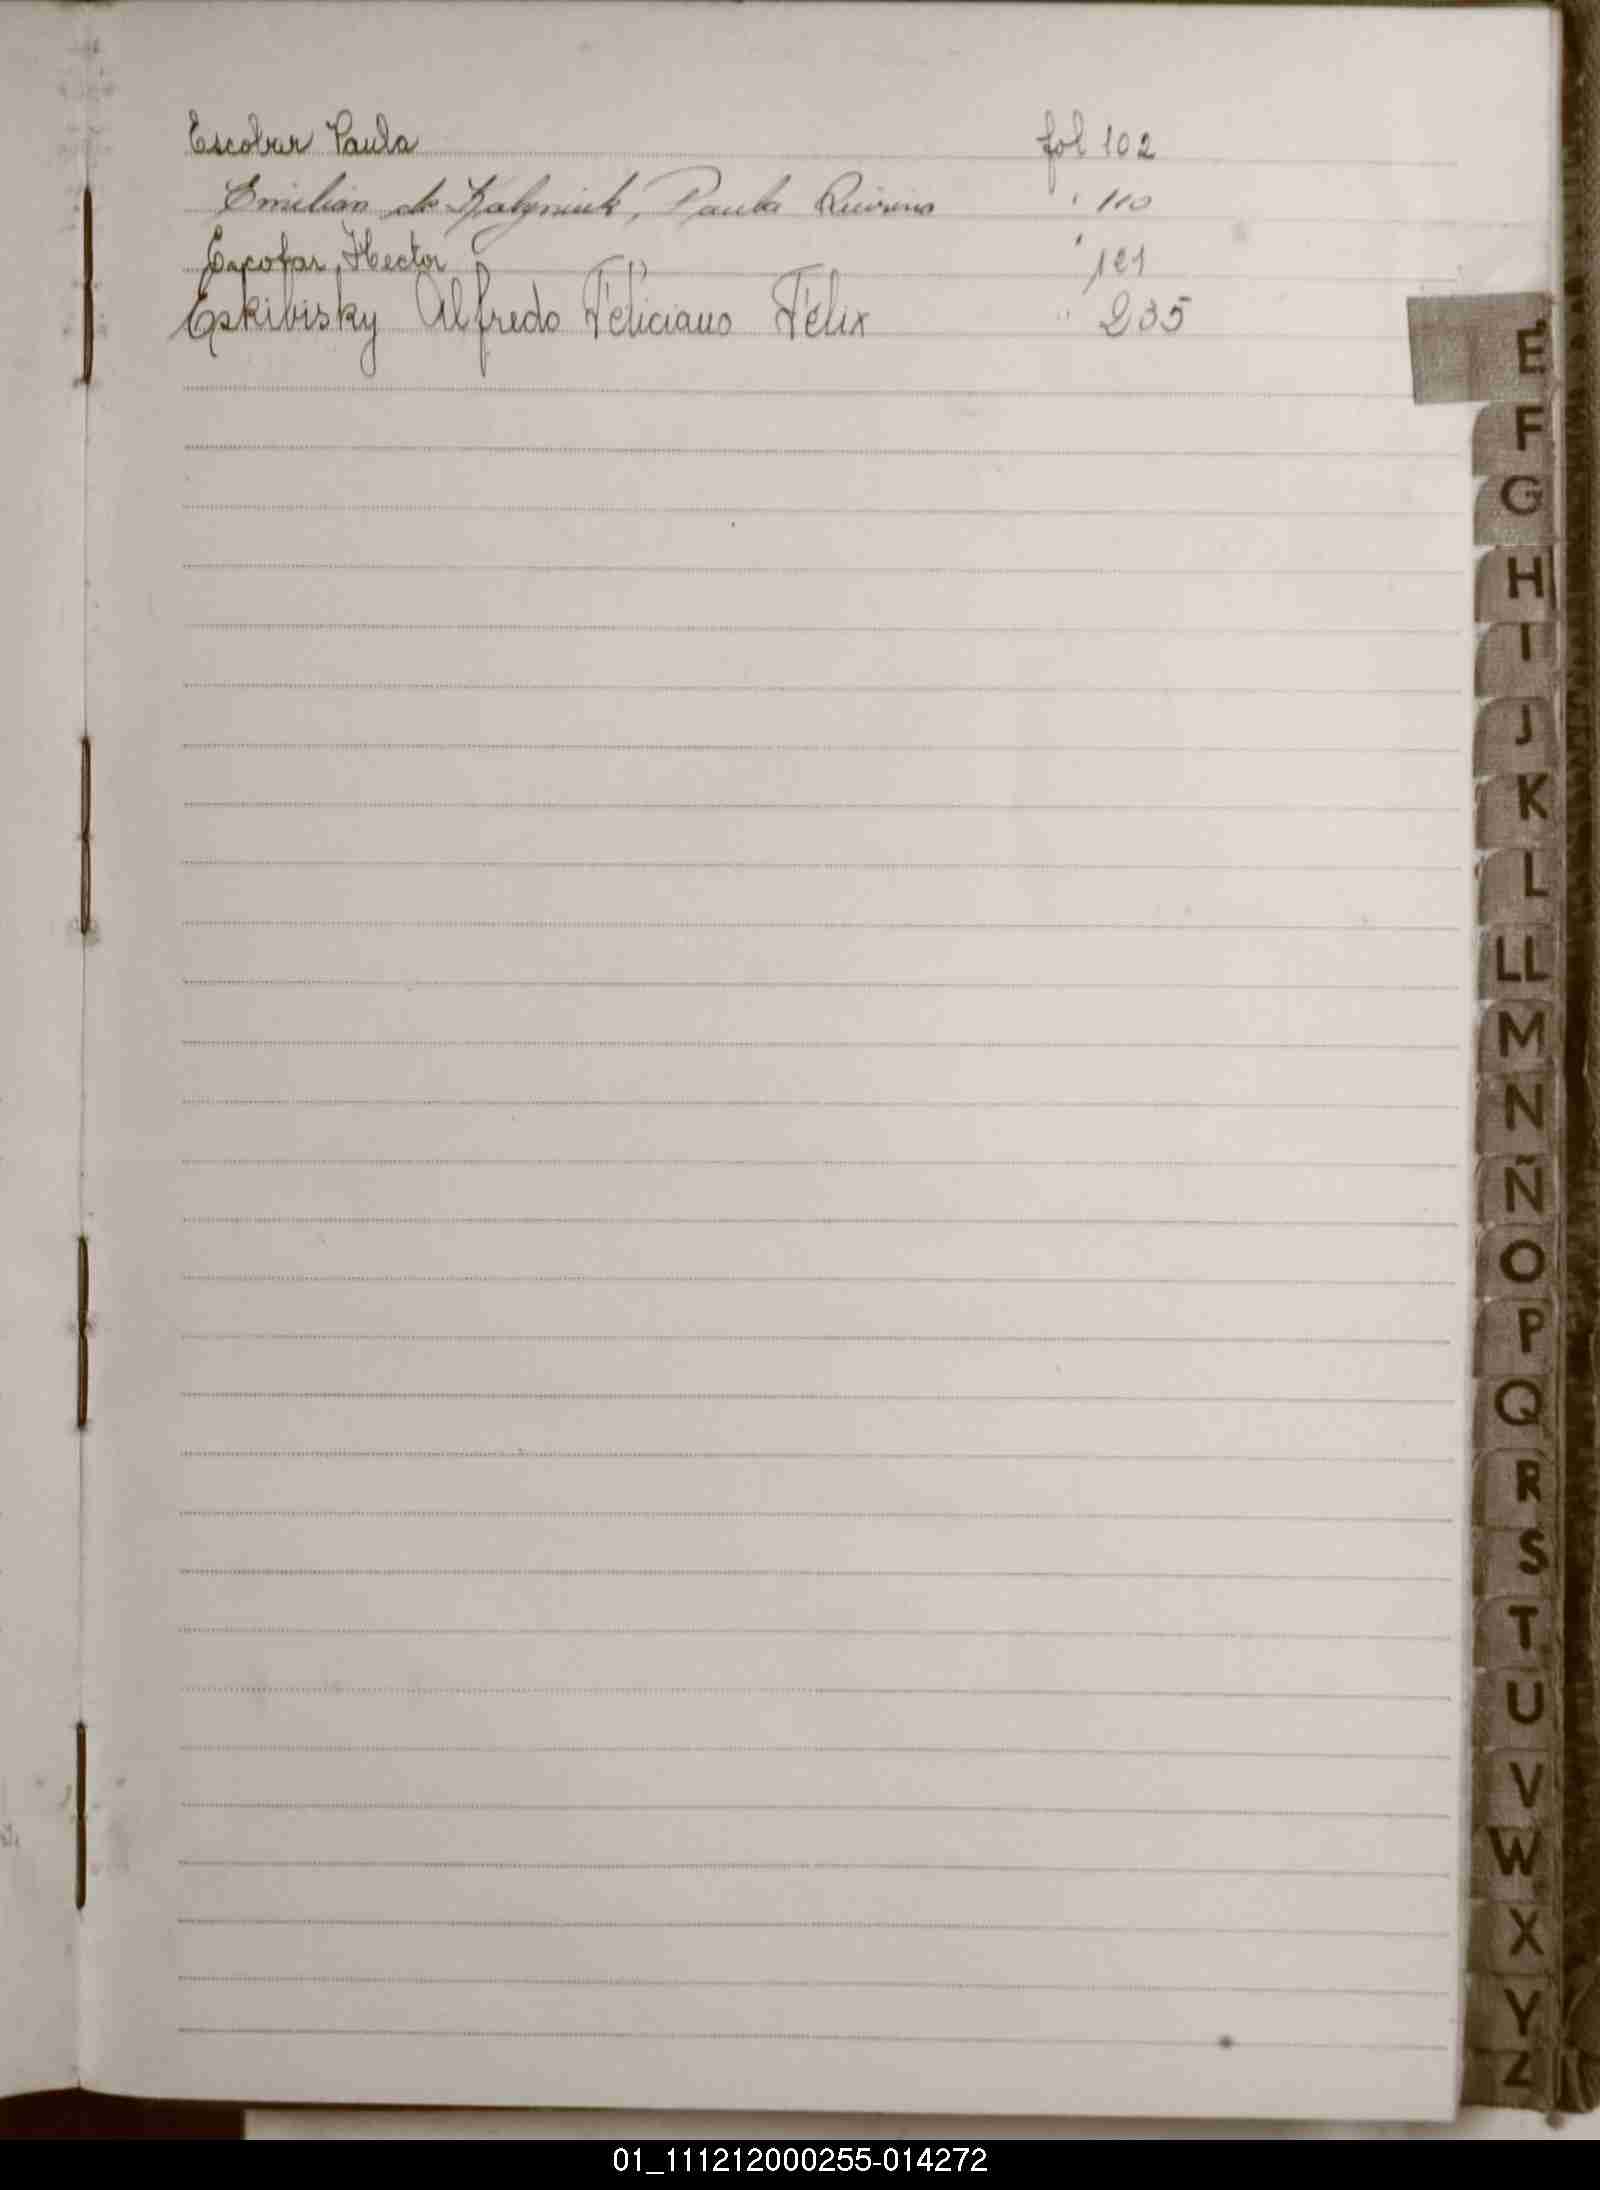 Escobar Paula fol 102
Emilian de Kalyniuk, Paula " 110
Escofar, Hector " 121
Eskibisky Alfredo Feliciano Félix " 235
E
F
G
H
I
J
K
L
LL
M
N
Ñ
O
P
Q
R
S
T
U
V
W
X
Y
Z
01_111212000255-014272